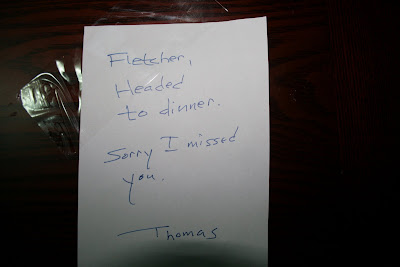 Fletcher,
Headed
to dinner.
Sorry I missed
you.
Thomas